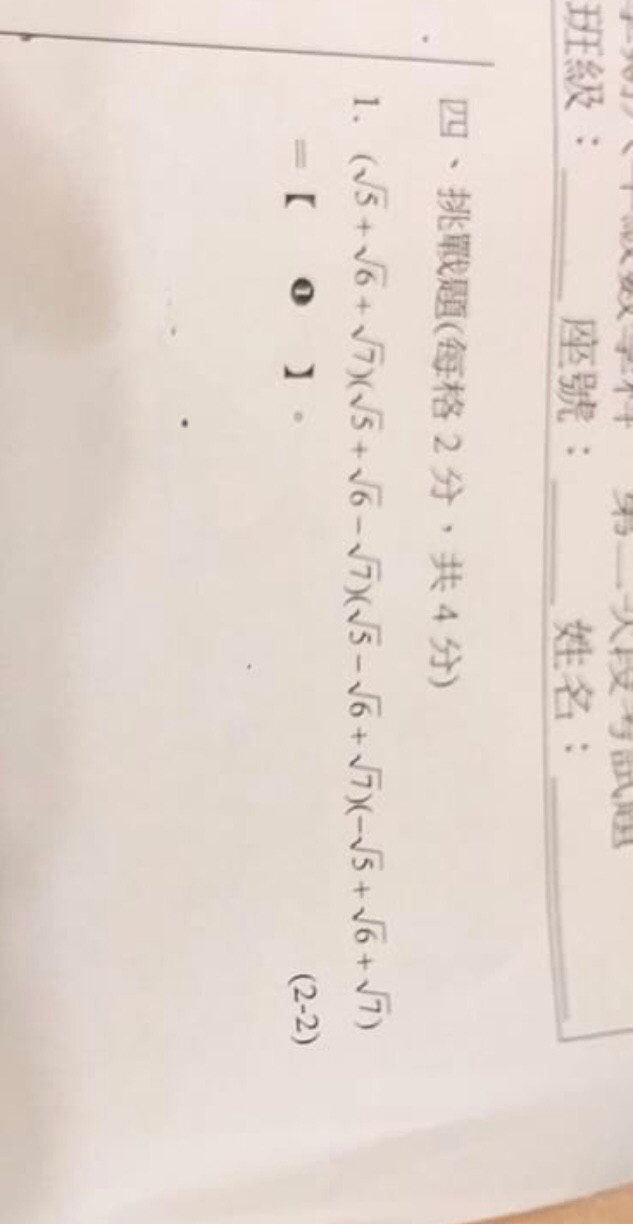 第二次段考試題
班級： 座號： 姓名：
四、挑戰題(每格 2 分，共 4 分)
1. (√5 + √6 + √7)(√5 + √6 − √7)(√5 − √6 + √7)(−√5 + √6 + √7)
=【 ❶ 】。 (2-2)